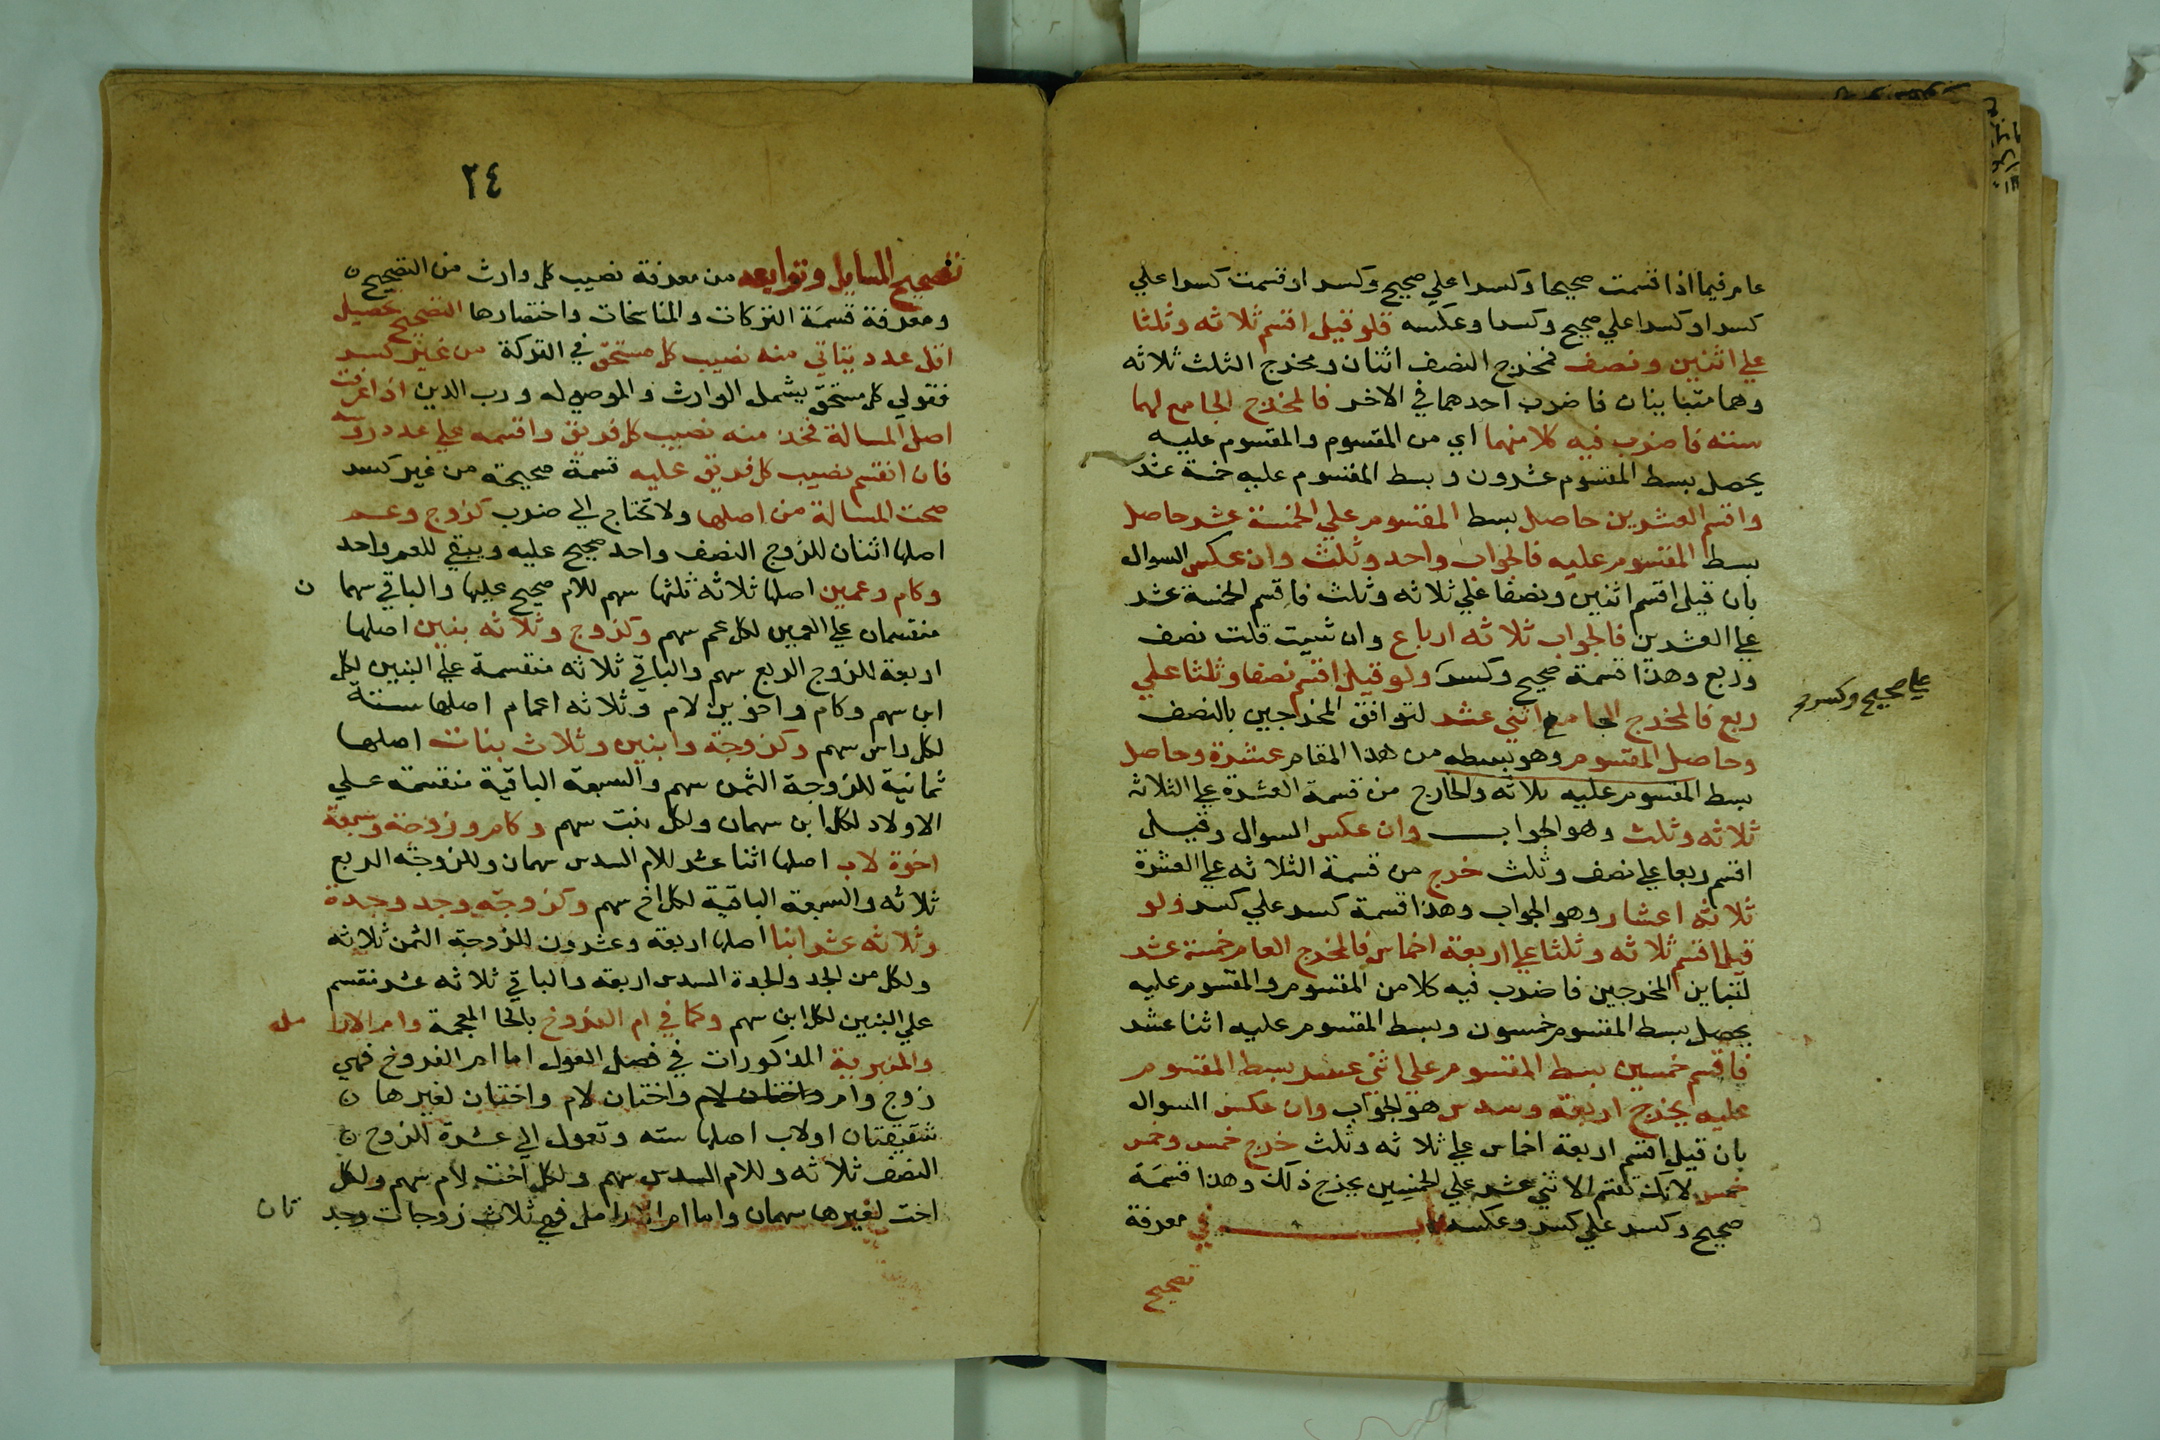 عام فيما اذا قسمت صحيحا وكسرا علي صحيح وكسر او قسمت كسرا علي
كسر او كسرا علي صحيح وكسر وعكسه فلو قيل اقسم ثلاثه وثلثا
علي اثنين ونصف فمخرج النصف اثنان ومخرج الثلث ثلاثه
وهما متباينان فاضرب احدهما في الاخر فالمخرج الجامع لهما
سته فاضرب فيه كلا منهما اي من المقسوم والمقسوم عليه
يحصل بسط المقسوم عشرون وبسط المقسوم عليه خمسة عشر
واقسم العشرين حاصل بسط المقسوم علي الخمسة عشر حاصل
بسط المقسوم عليه فالجواب واحد وثلث وان عكس السوال
بان قيل اقسم اثنين ونصفا علي ثلاثه وثلث فاقسم الخمسة عشر
علي العشرين فالجواب ثلاثه ارباع وان شيت قلت نصف
وربع وهذا قسمة صحيح وكسر ولو قيل اقسم نصفا وثلثا علي
علي صحيح وكسر
ربع فالمخرج الجامع اثني عشر لتوافق المخرجين بالنصف
وحاصل المقسوم وهو بسطه من هذا المقام عشرة وحاصل
بسط المقسوم عليه ثلاثه والخارج من قسمة العشرة علي الثلاثه
ثلاثه وثلث وهو الجواب وان عكس السوال وقيل
اقسم ربعا علي نصف وثلث خرج من قسمة الثلاثه علي العشرة
ثلاثه اعشار وهو الجواب وهذا قسمة كسر علي كسر ولو
قيل اقسم ثلاثه وثلثا علي اربعة اخماس فالمخرج العام خمسة عشر
لتباين المخرجين فاضرب فيه كلا من المقسوم والمقسوم عليه
يحصل بسط المقسوم خمسون وبسط المقسوم عليه اثنا عشر
فاقسم خمسين بسط المقسوم علي اثني عشر بسط المقسوم
عليه يخرج اربعة وسدس هو الجواب وان عكس السوال
بان قيل اقسم اربعة اخماس علي ثلاثه وثلث خرج خمس وخمس
خمس لانك تقسم الاثني عشر علي الخمسين يخرج ذلك وهذا قسمة
صحيح وكسر علي كسر وعكسه باب في معرفة
تصحيح
٢٤
تصحيح المسايل وتوابعه من معرفة نصيب كل وارث من التصحيح
ومعرفة قسمة التركات والمناسخات واختصارها التصحيح تحصيل
اقل عدد يتاتي منه نصيب كل مستحق في التركة من غير كسر
فقولي كل مستحق يشمل الوارث والموصي له ورب الدين اذا عرفت
اصل المسالة فخذ منه نصيب كل فريق واقسمه علي عدد روسه
فان انقسم نصيب كل فريق عليه قسمة صحيحة من غير كسر
صحت المسالة من اصلها ولا تحتاج الي ضرب كزوج وعم
اصلها اثنان للزوج النصف واحد صحيح عليه ويبقي للعم واحد
وكام وعمين اصلها ثلاثه ثلثها سهم للام صحيح عليها والباقي سهما ن
منقسمان علي العمين لكل عم سهم وكزوج وثلاثه بنين اصلها
اربعة للزوج الربع سهم والباقي ثلاثه منقسمة علي البنين لكل
ابن سهم وكام واخوين لام وثلاثه اعمام اصلها ستة
لكل راس سهم وكزوجة وابنين وثلاث بنات اصلها
ثمانية للزوجة الثمن سهم والسبعة الباقية منقسمة علي
الاولاد لكل ابن سهمان ولكل بنت سهم وكام وزوجة وسبعة
اخوة لاب اصلها اثنا عشر للام السدس سهمان وللزوجة الربع
ثلاثه والسبعة الباقية لكل اخ سهم وكزوجة وجد وجدة
وثلاثه عشر ابنا اصلها اربعة وعشرون للزوجة الثمن ثلاثه
ولكل من الجد والجدة السدس اربعه والباقي ثلاثه عشر منقسم
علي البنين لكل ابن سهم وكما في ام الفروخ بالخا المعجمة وام الارا مل
والمنبرية المذكورات في فصل العول اما ام الفروخ فهي
زوج وام واختان لام واختان لام واختان لغيرها
شقيقتان او لاب اصلها سته وتعول الي عشرة للزوج
النصف ثلاثه وللام السدس سهم ولكل اخت لام سهم ولكل
اخت لغيرها سهمان واما ام الارامل فهي ثلاث زوجات وجد تان